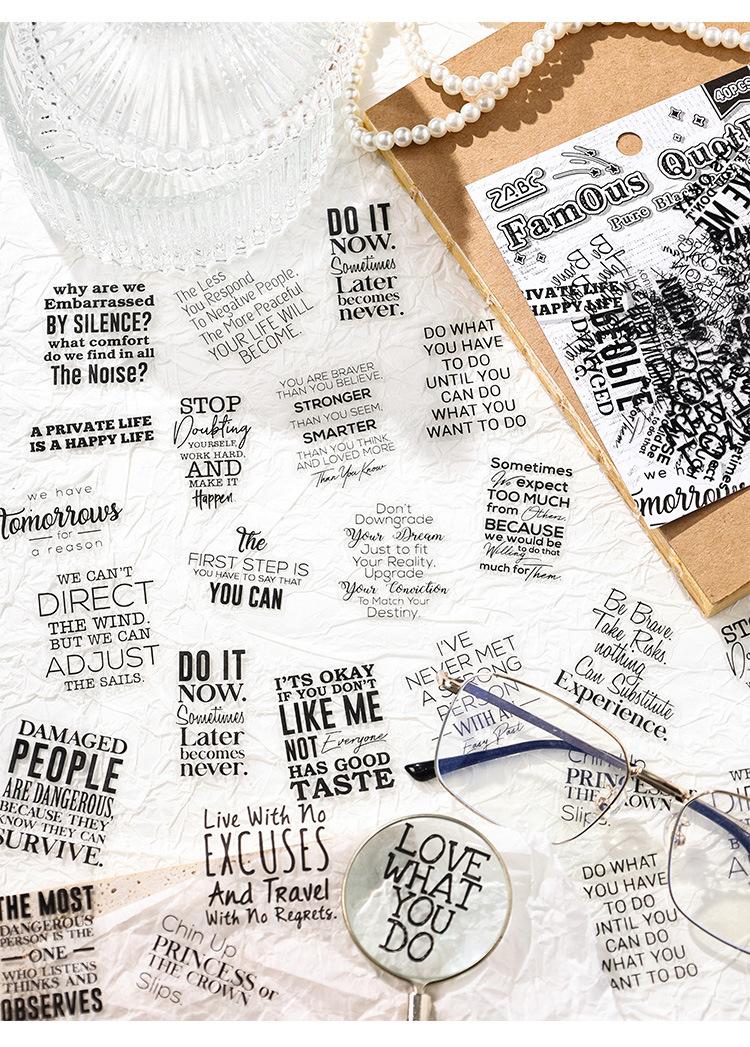 40PCS
ZABC
FamOus Quot
Pure Bla
DO IT
NOW.
Sometimes
Later
becomes
never.
why are we
Embarrassed
BY SILENCE?
what comfort
do we find in all
The Noise?
The Less
You Respond
To Negative People,
The More Peaceful
YOUR LIFE WILL
BECOME.
DO WHAT
YOU HAVE
TO DO
UNTIL YOU
CAN DO
WHAT YOU
WANT TO DO
A PRIVATE LIFE
IS A HAPPY LIFE
STOP
Doubting
YOURSELF,
WORK HARD,
AND
MAKE IT
Happen.
YOU ARE BRAVER
THAN YOU BELIEVE,
STRONGER
THAN YOU SEEM,
SMARTER
THAN YOU THINK
AND LOVED MORE
Than You Know
IVATE LIFE
HAPPY LIFE
we have
Tomorrows
for
a reason
The
FIRST STEP IS
YOU HAVE TO SAY THAT
YOU CAN
Don't
Downgrade
Your Dream
Just to fit
Your Reality.
Upgrade
Your Conviction
To Match Your
Destiny.
Sometimes
We expect
TOO MUCH
from Others.
BECAUSE
we would be
Willing to do that
much for Them.
we
omorrows
WE CAN'T
DIRECT
THE WIND.
BUT WE CAN
ADJUST
THE SAILS.
DO IT
NOW.
Sometimes
Later
becomes
never.
I'TS OKAY
IF YOU DON'T
LIKE ME
NOT Everyone
HAS GOOD
TASTE
I'VE
NEVER MET
A STRONG
PERSON
WITH AN
Easy Past
Be Brave.
Take Risks.
nothing
Can Substitute
Experience.
DAMAGED
PEOPLE
ARE DANGEROUS,
BECAUSE THEY
KNOW THEY CAN
SURVIVE.
Live With No
EXCUSES
And Travel
With No Regrets.
LOVE
WHAT
YOU
DO
Chin
PRINCESS
THE CROWN
Slips.
THE MOST
DANGEROUS
PERSON IS THE
ONE
WHO LISTENS
THINKS AND
OBSERVES
Chin Up
PRINCESS or
THE CROWN
Slips.
DO WHAT
YOU HAVE
TO DO
UNTIL YOU
CAN DO
WHAT YOU
ANT TO DO